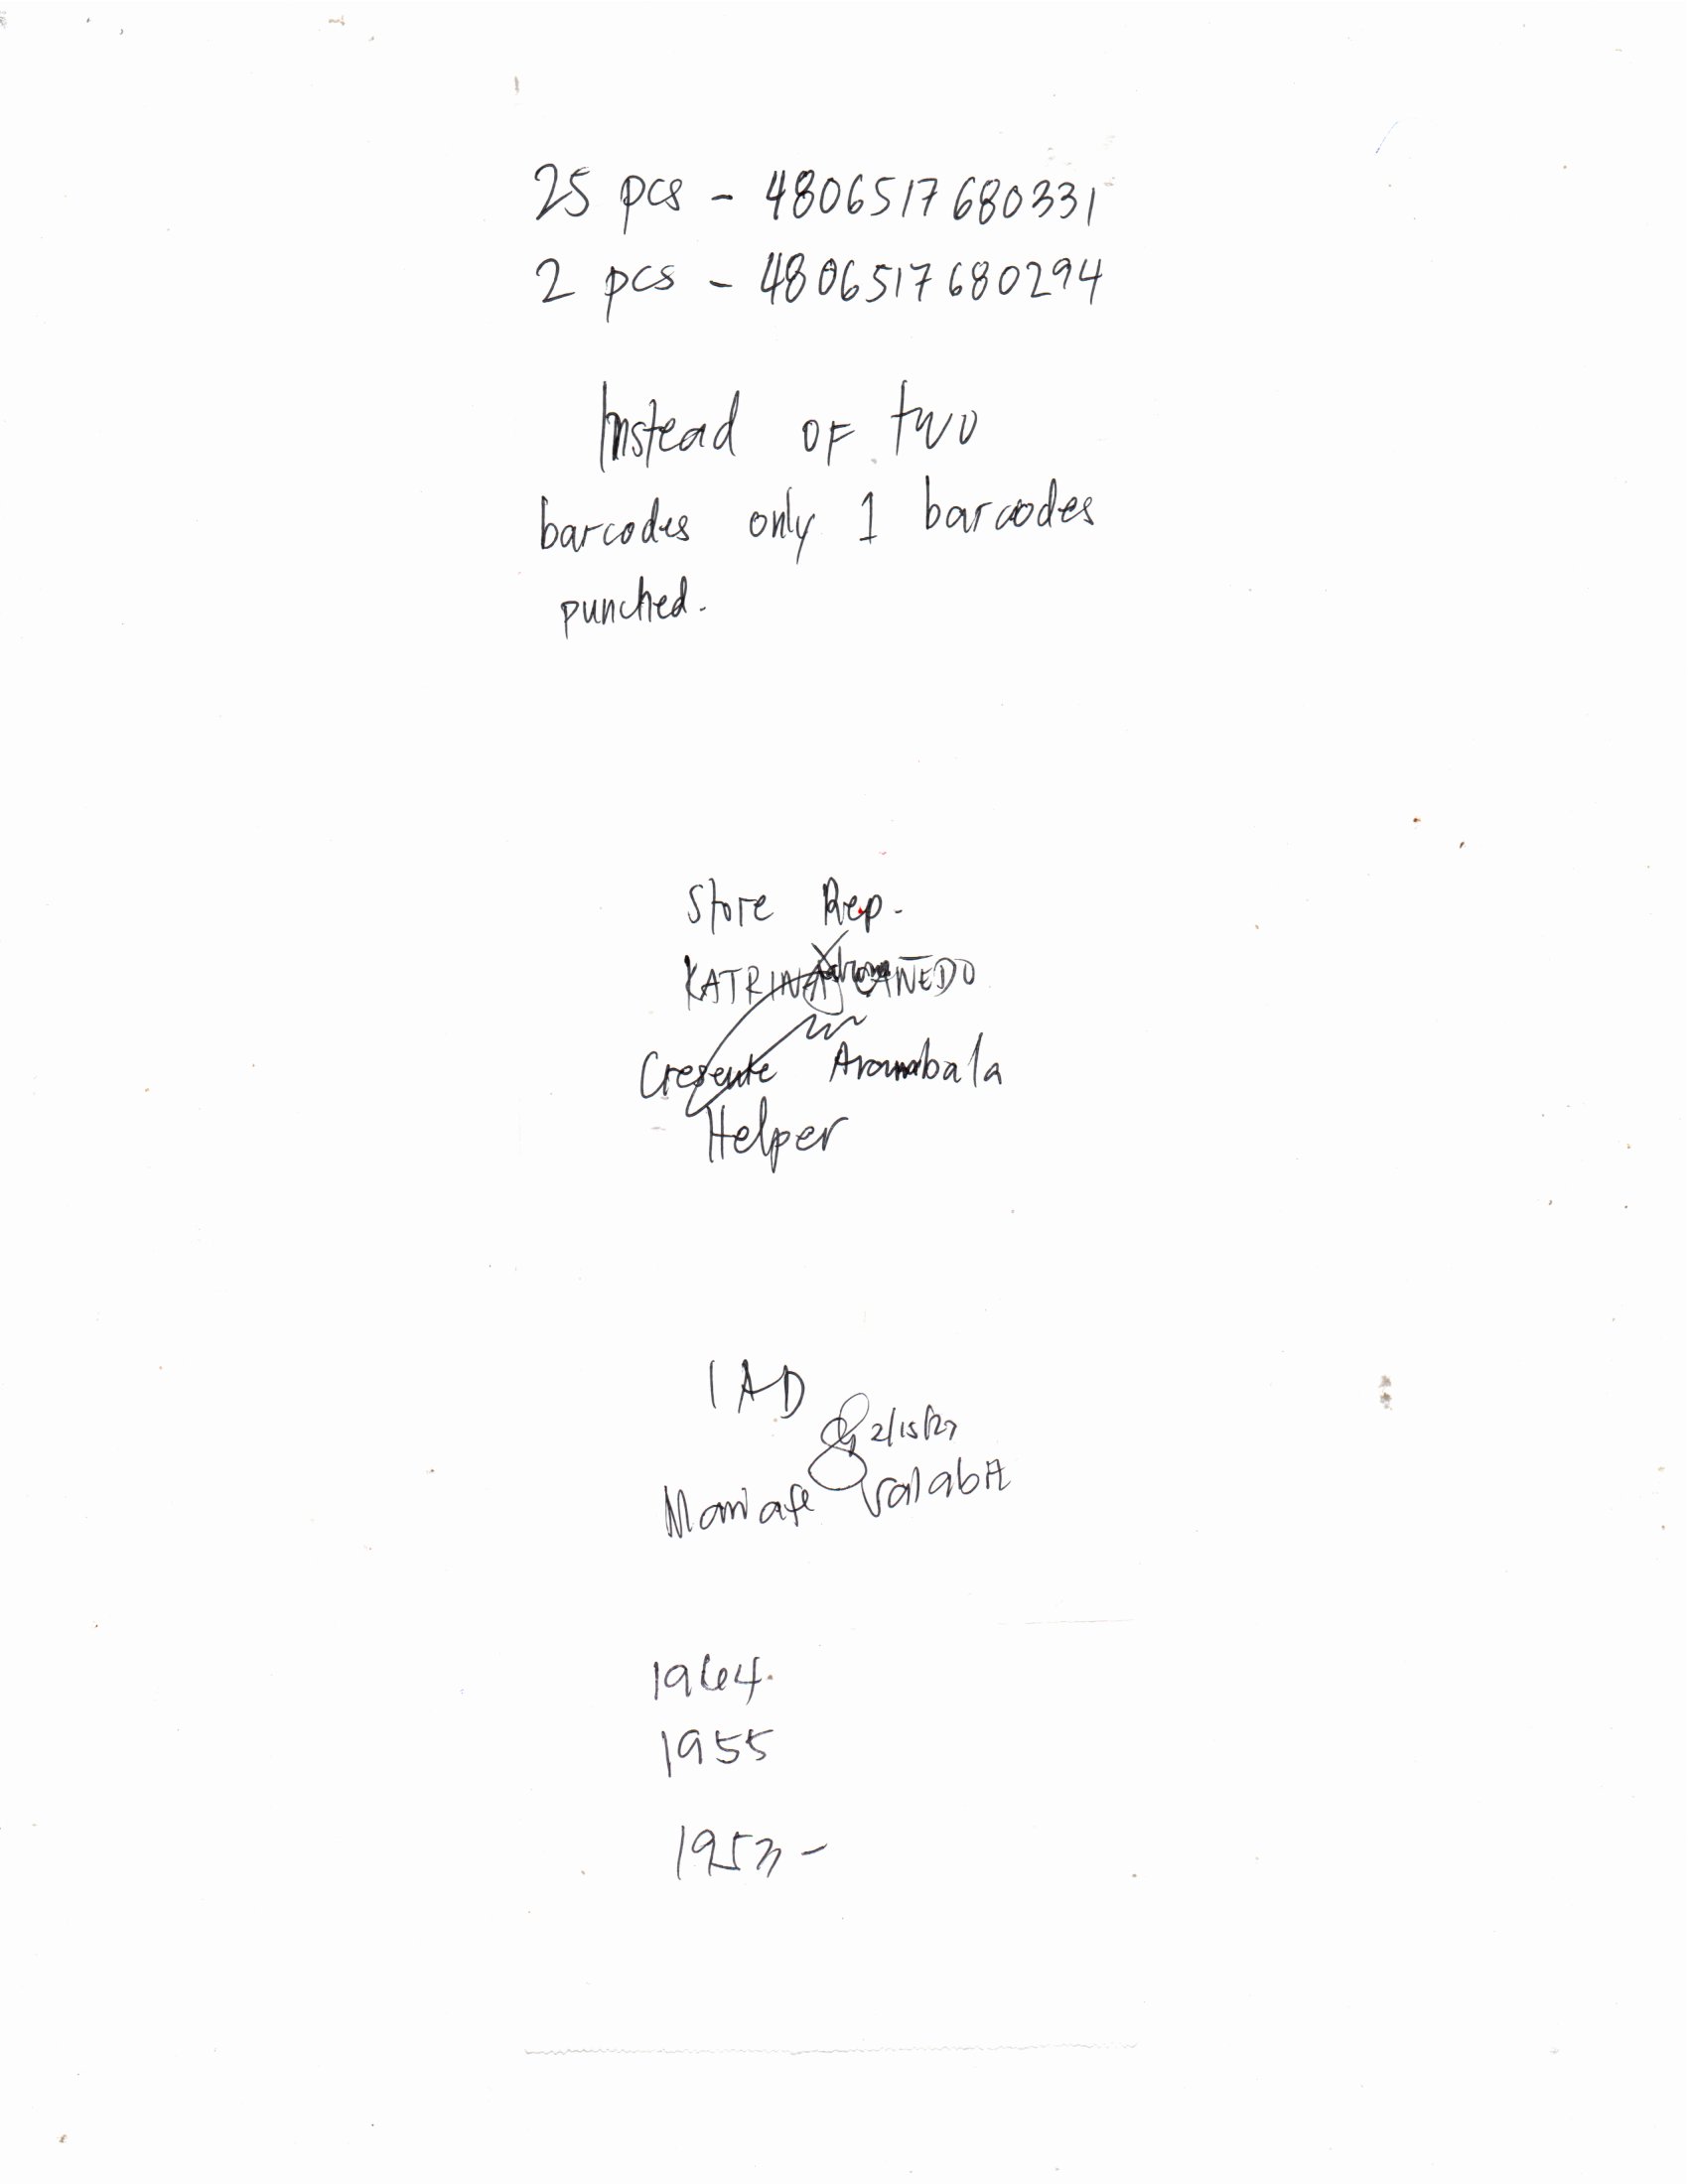 25 pcs - 4806517680331
2 pcs - 4806517680294
Instead OF two
barcodes only 1 barcodes
punched.
Store Rep.
KATRINA CAÑEDO
Aromabala
Helper
IAD
2/15/27
Salabit
1964
1955
1953 -